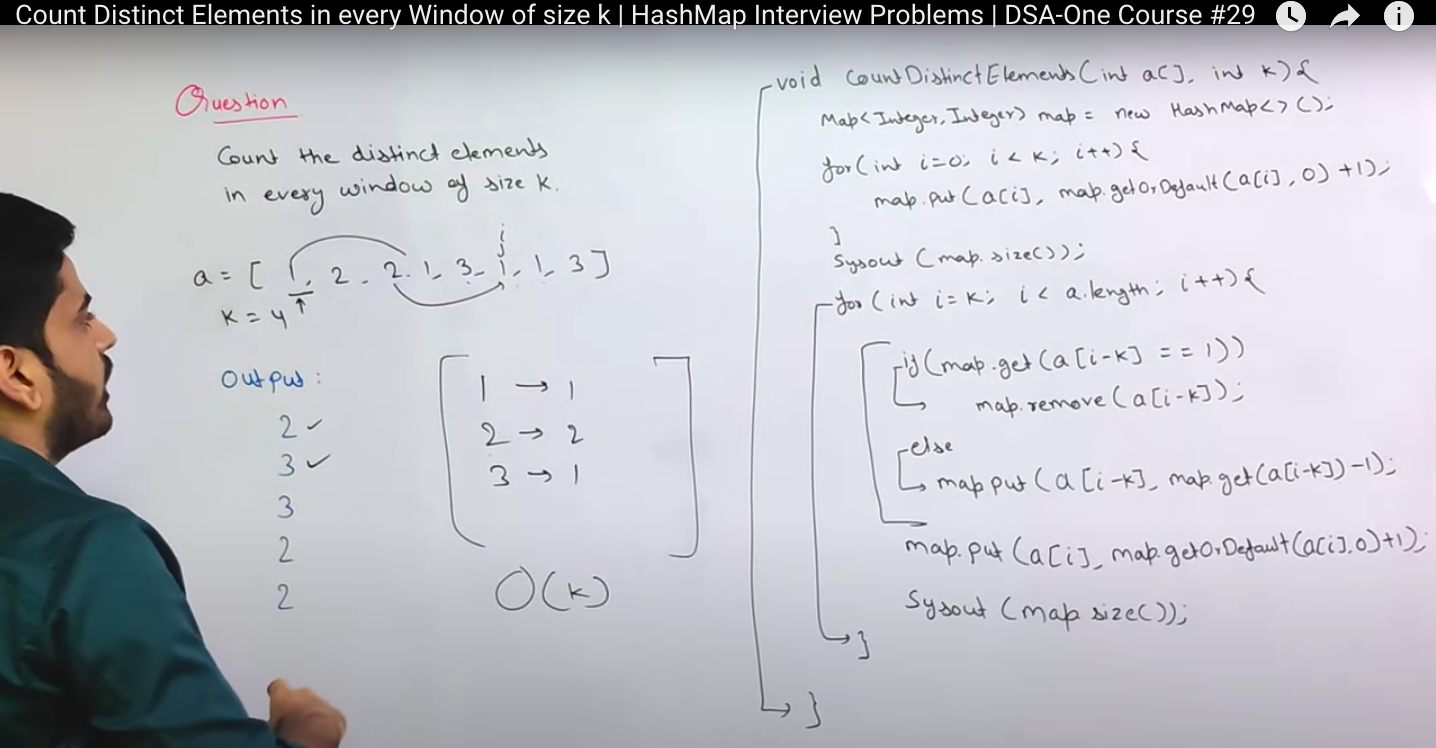 Count Distinct Elements in every Window of size k | HashMap Interview Problems | DSA-One Course #29
Question
Count the distinct elements
in every window of size k.
i
a = [ 1, 2, 2, 1, 3, 1, 1, 3 ]
k = 4
Output :
2 ✓
3 ✓
3
2
2
1 → 1
2 → 2
3 → 1
O(k)
void CountDistinctElements(int a[], int k){
Map<Integer, Integer> map = new HashMap<>();
for(int i=0; i < k; i++){
map.put(a[i], map.getOrDefault(a[i], 0) +1);
}
Sysout (map.size());
for (int i=k; i < a.length; i++){
if(map.get(a[i-k] == 1))
map.remove(a[i-k]);
else
map.put(a[i-k], map.get(a[i-k])-1);
map.put(a[i], map.getOrDefault(a[i],0)+1);
Sysout (map.size());
}
}